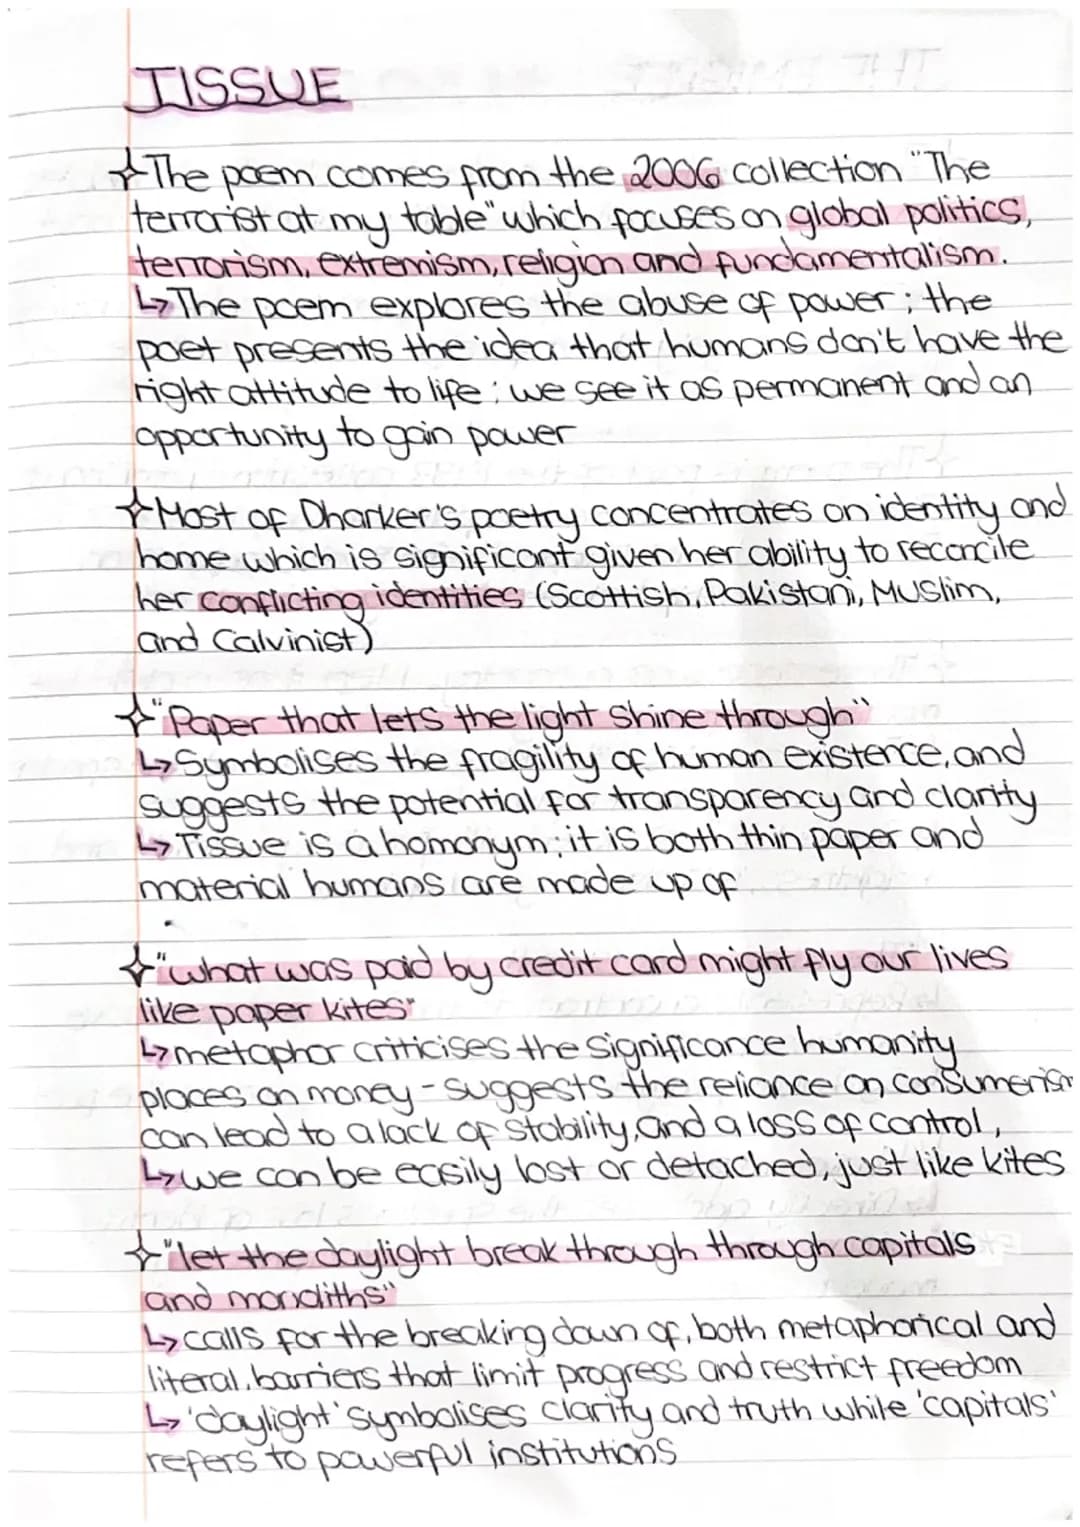 TISSUE
✧The poem comes from the 2006 collection "The
terrorist at my table" which focuses on global politics,
terrorism, extremism, religion and fundamentalism.
↳The poem explores the abuse of power; the
poet presents the idea that humans don't have the
right attitude to life: we see it as permanent and an
opportunity to gain power
✧Most of Dharker's poetry concentrates on identity and
home which is significant given her ability to reconcile
her conflicting identities (Scottish, Pakistani, Muslim,
and Calvinist)
✧"Paper that lets the light shine through"
↳Symbolises the fragility of human existence, and
suggests the potential for transparency and clarity
↳Tissue is a homonym; it is both thin paper and
material humans are made up of
✧"what was paid by credit card might fly our lives
like paper kites"
↳metaphor criticises the significance humanity
places on money - suggests the reliance on consumerism
can lead to a lack of stability, and a loss of control,
↳we can be easily lost or detached, just like kites
✧"let the daylight break through through capitals
and monoliths"
↳calls for the breaking down of, both metaphorical and
literal, barriers that limit progress and restrict freedom
↳'daylight' symbolises clarity and truth while 'capitals'
refers to powerful institutions